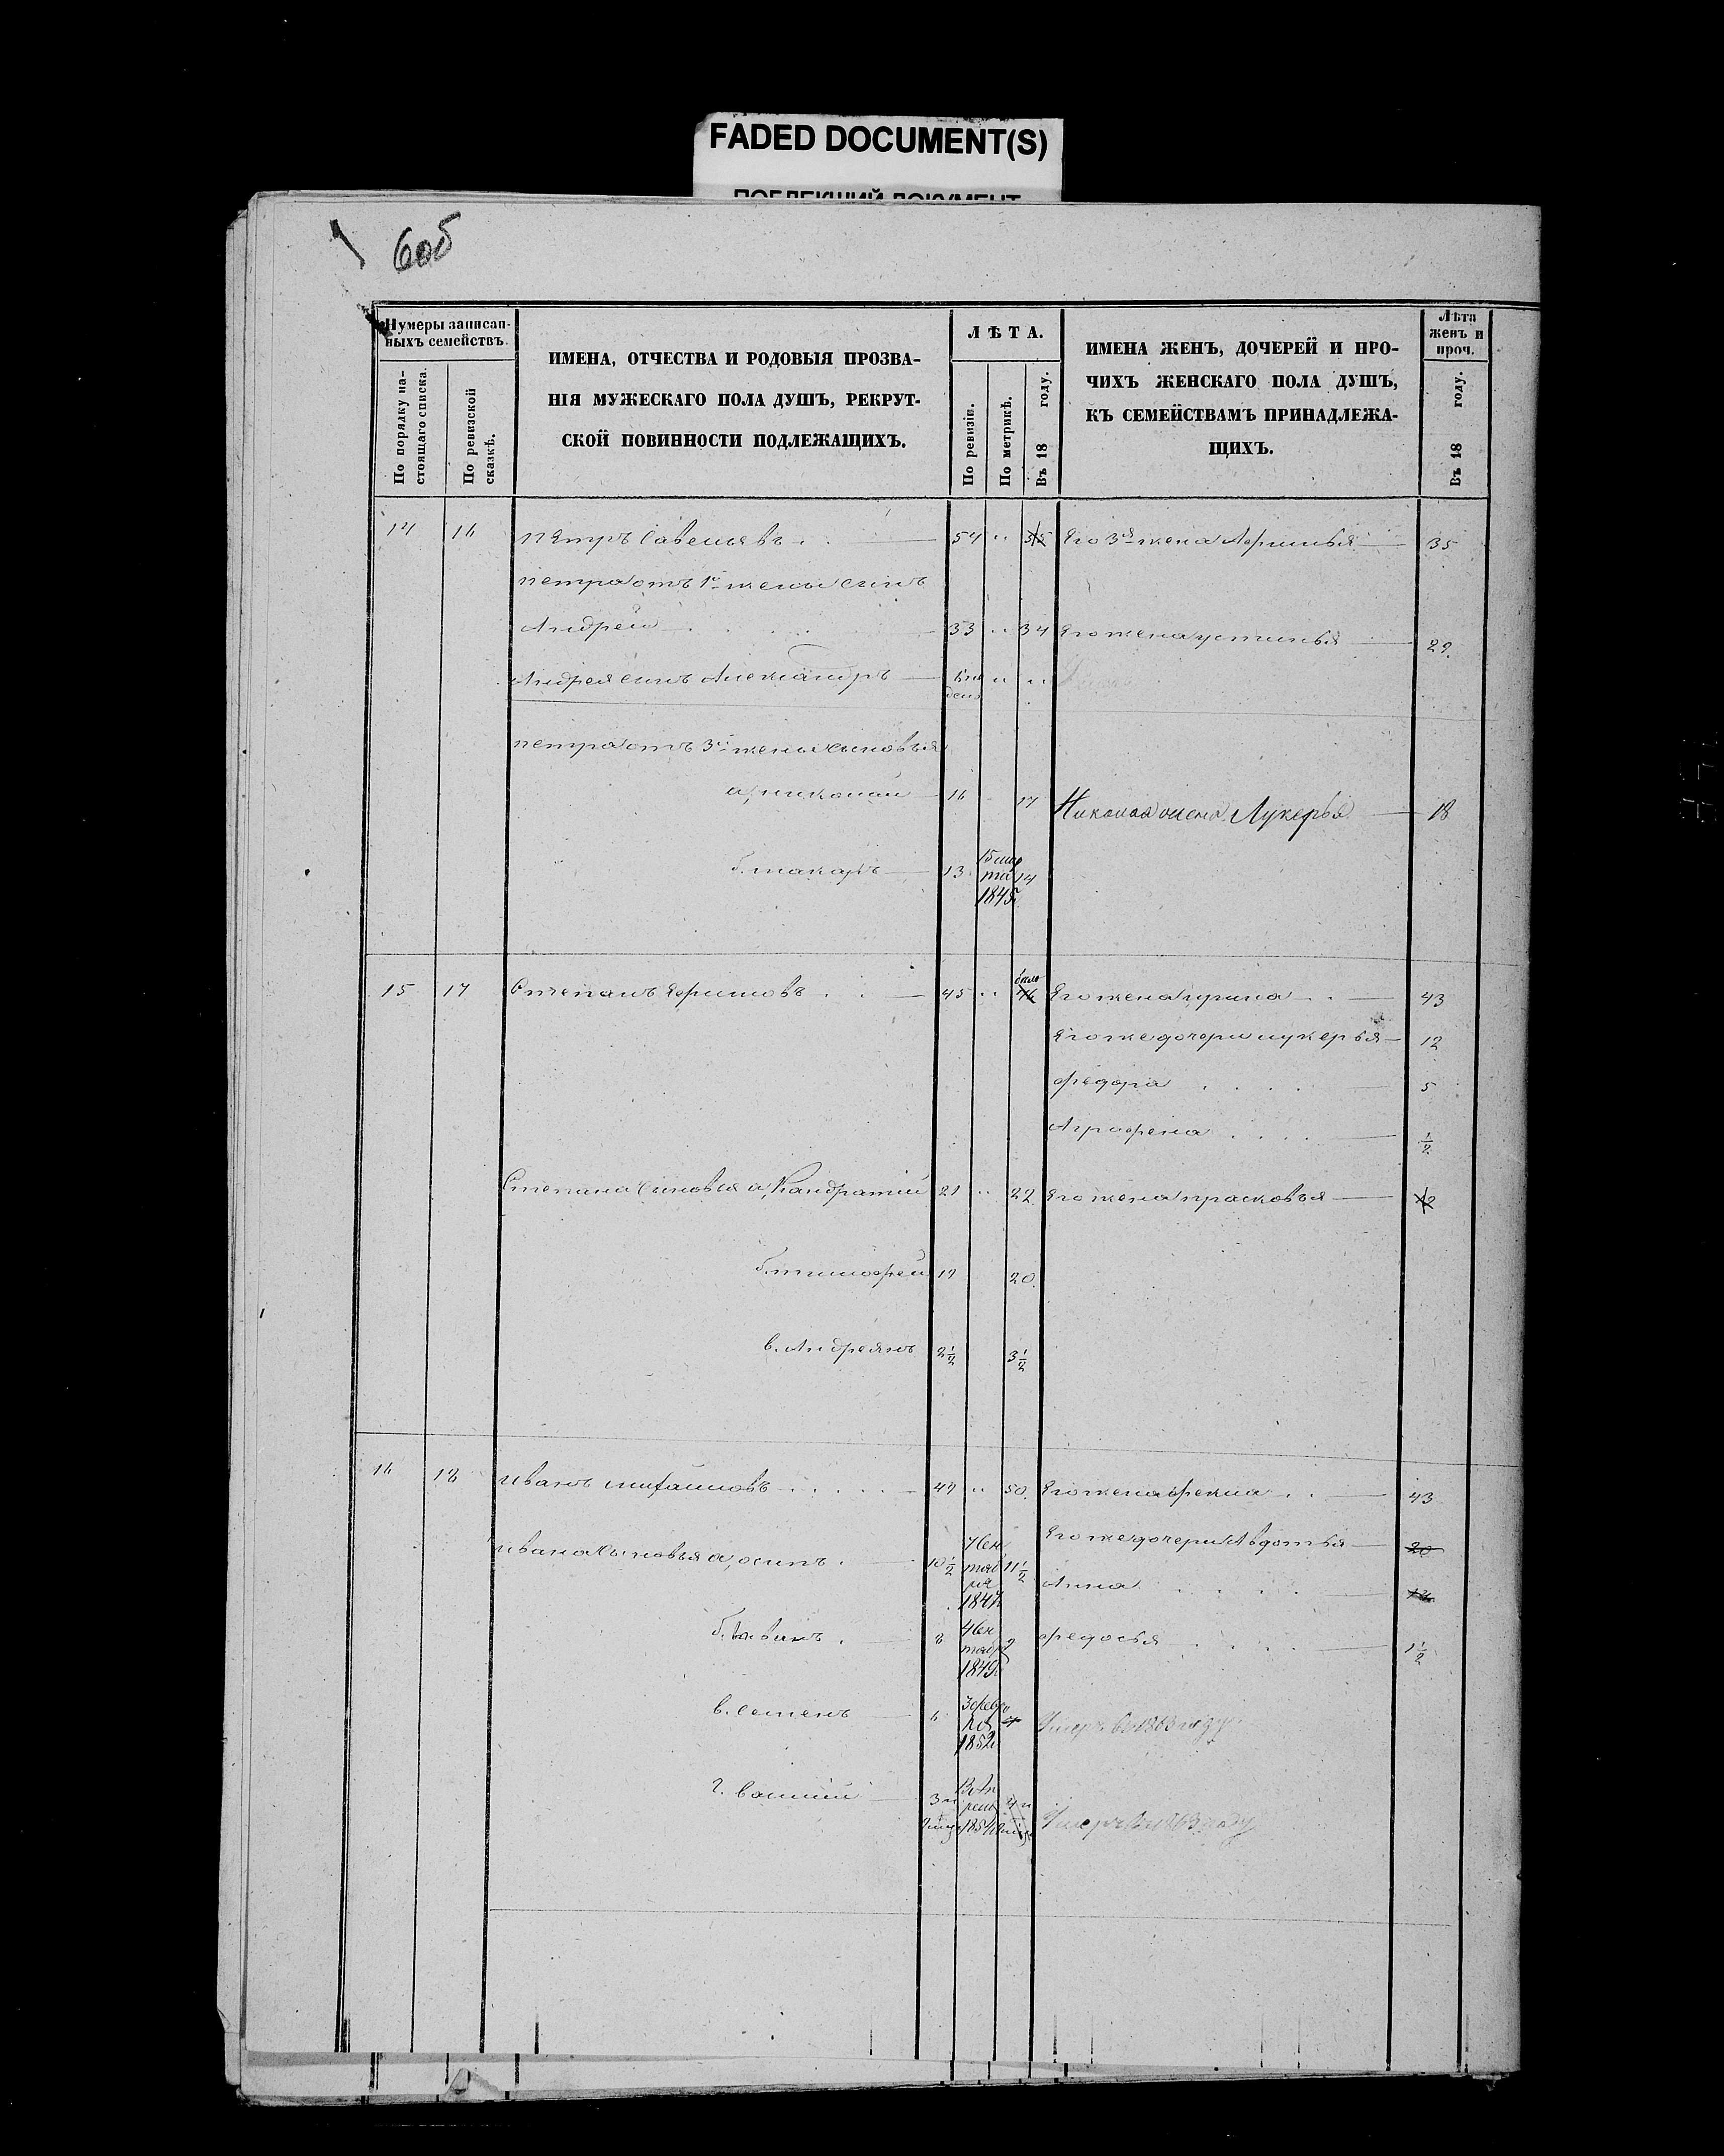 FADED DOCUMENT(S)
ПОБЛЕКШИЙ ДОКУМЕНТ
60об
Нумеры записан-
ныхъ семействъ.
По порядку на-
стоящаго списка.
По ревизской
сказкѣ.
ИМЕНА, ОТЧЕСТВА И РОДОВЫЯ ПРОЗВА-
НІЯ МУЖЕСКАГО ПОЛА ДУШЪ, РЕКРУТ-
СКОЙ ПОВИННОСТИ ПОДЛЕЖАЩИХЪ.
ЛѢТА.
По ревизіи.
По метрикѣ.
Въ 18 году.
ИМЕНА ЖЕНЪ, ДОЧЕРЕЙ И ПРО-
ЧИХЪ ЖЕНСКАГО ПОЛА ДУШЪ,
КЪ СЕМЕЙСТВАМЪ ПРИНАДЛЕЖА-
ЩИХЪ.
Лѣта
женъ и
проч.
Въ 18 году.
14 16 Петръ Савельевъ 54 " 55 Его 3я жена Афимья 35
петра отъ 1й жены сынъ
Андрей 33 " 34 Его жена устинья 29.
Андрея сынъ Александръ " "
петра отъ 3й жены сыновья
а, николай 16 17 Николая жена Лукерья 18
б. макаръ 13 15 мар та 1845 14
15 17 Степанъ Ефимовъ 45 " 46 Его жена ирина 43
Его же дочери лукерья 12
федора 5
Аграфена 1/2
Степана сыновья а, Кандратий 21 " 22 Его жена прасковья
б. тимофей 19 20.
в. Андреянъ 2 1/2 3 1/2
16 18 иванъ михайловъ 49 " 50. Его жена фекла 43
ивана сыновья а, осипъ 10 1/2 11 1/2 Его же дочери Авдотья 20
1847
Анна
б. 8 1849 9 федосья 1 1/2
в. семенъ 6 3 февра ля 1852 Умеръ въ 1863 году
г. василий 3 и 1854 Умеръ въ 1863 году